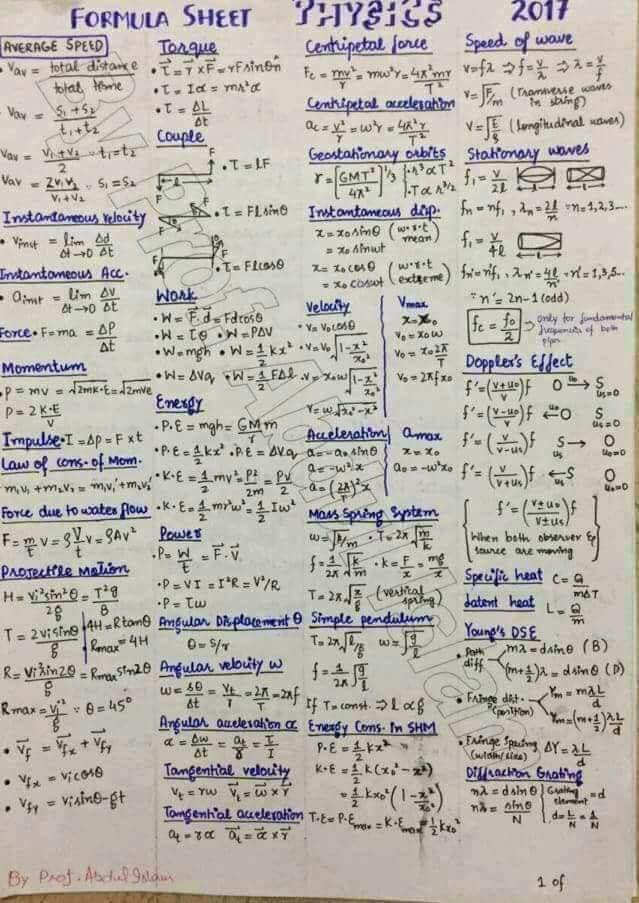 FORMULA SHEET PHYSICS 2017
AVERAGE SPEED
• Vav = total distance / total time
Vav = S1 + S2 / t1 + t2
Vav = V1 + V2 / 2 ∵ t1 = t2
Vav = 2V1V2 / V1 + V2 ∵ S1 = S2
Instantaneous velocity
• Vinst = lim Δt→0 Δd/Δt
Instantaneous Acc.
• ainst = lim Δt→0 ΔV/Δt
Force • F = ma = ΔP/Δt
Momentum
• P = mv = √2mK·E = √2mVe
P = 2K·E / V
Impulse • I = ΔP = F × t
Law of cons. of Mom.
m1v1 + m2v2 = m1v1' + m2v2'
Force due to water flow
F = m/t v = ρ V/t v = ρAv²
Projectile Motion
H = Vi² sin²θ / 2g = T²g / 8
T = 2Vi sinθ / g
4H = R tanθ
Rmax = 4H
R = Vi² sin2θ / g = Rmax sin2θ
Rmax = Vi² / g ∵ θ = 45°
• Vf = Vfx + Vfy
• Vfx = Vi cosθ
• Vfy = Vi sinθ - gt
By Prof. Abdul Islam
Torque
• τ = r × F = rF sinθ n
• τ = Iα = mr²α
• τ = ΔL/Δt
Couple
F
• τ = lF
l
F
F
• τ = Fl sinθ
F
F
• τ = Fl cosθ
F
Work
• W = F · d = Fd cosθ
• W = τθ • W = PΔV
• W = mgh • W = 1/2 kx²
• W = ΔVq • W = 1/2 FΔl
Energy
• P·E = mgh = GMm / r
• P·E = 1/2 kx² • P·E = ΔVq
• K·E = 1/2 mv² = P²/2m = PV/2
• K·E = 1/2 mr²ω² = 1/2 Iω²
Power
• P = W/t = F · V
• P = VI = I²R = V²/R
• P = τω
Angular Displacement θ
θ = S/r
Angular velocity ω
ω = Δθ/Δt = Vt/r = 2π/T = 2πf
Angular acceleration α
α = Δω/Δt = at/r = τ/I
Tangential velocity
Vt = rω Vt = ω × r
Tangential acceleration
at = rα at = α × r
Centripetal force
Fc = mv²/r = mω²r = 4π²mr/T²
Centripetal acceleration
ac = v²/r = ω²r = 4π²r/T²
Geostationary orbits
r = [GMT²/4π²]^1/3 { • r³ ∝ T² • T ∝ r^3/2
Instantaneous disp.
x = x0 sinθ (w·r·t mean)
= x0 sinωt
x = x0 cosθ (w·r·t extreme)
= x0 cosωt
Velocity
• V = V0 cosθ
• V = V0 √1 - x²/x0²
• V = x0ω √1 - x²/x0²
V = ω√x0² - x²
Vmax
V0 = x0ω
V0 = x0 2π/T
V0 = 2πf x0
Acceleration
a = -a0 sinθ
a = -ω²x
a = (2π/T)² x
amax
x = x0
a0 = -ω²x0
Mass Spring System
ω = √k/m • T = 2π√m/k
f = 1/2π √k/m • k = F/x = mg/x
T = 2π√x/g (vertical spring)
Simple pendulum
T = 2π√l/g ω = √g/l
f = 1/2π √g/l
If T = const. ⇒ l ∝ g
Energy Cons. in SHM
P·E = 1/2 kx²
K·E = 1/2 k(x0² - x²)
= 1/2 kx0² (1 - x²/x0²)
T·E = P·Emax = K·Emax = 1/2 kx0²
Speed of wave
V = fλ ⇒ f = V/λ ⇒ λ = V/f
V = √F/m (Transverse waves in string)
V = √E/ρ (longitudinal waves)
Stationary waves
f1 = V/2l
fn = nf1, λn = 2l/n ∵ n = 1,2,3...
f1 = V/4l
fn' = n'f1, λn' = 4l/n' ∵ n' = 1,3,5...
∵ n' = 2n-1 (odd)
fc = f0/2 → only for fundamental frequencies of both pipes
Doppler's Effect
f' = (V+u0/V) f O u0→ S us=0
f' = (V-u0/V) f u0←O S us=0
f' = (V/V-us) f S us→ O u0=0
f' = (V/V+us) f us←S O u0=0
f' = (V±u0/V±us) f
When both observer & source are moving
Specific heat C = Q/mΔT
latent heat L = Q/m
Young's DSE
• Path diff. mλ = d sinθ (B)
(m+1/2)λ = d sinθ (D)
• Fringe dist. (position) Ym = mλL/d
Ym = (m+1/2)λL/d
• Fringe Spacing (width/size) ΔY = λL/d
Diffraction Grating
nλ = d sinθ
nλ = sinθ/N
Grating element = d
d = L/N = 1/N
1 of